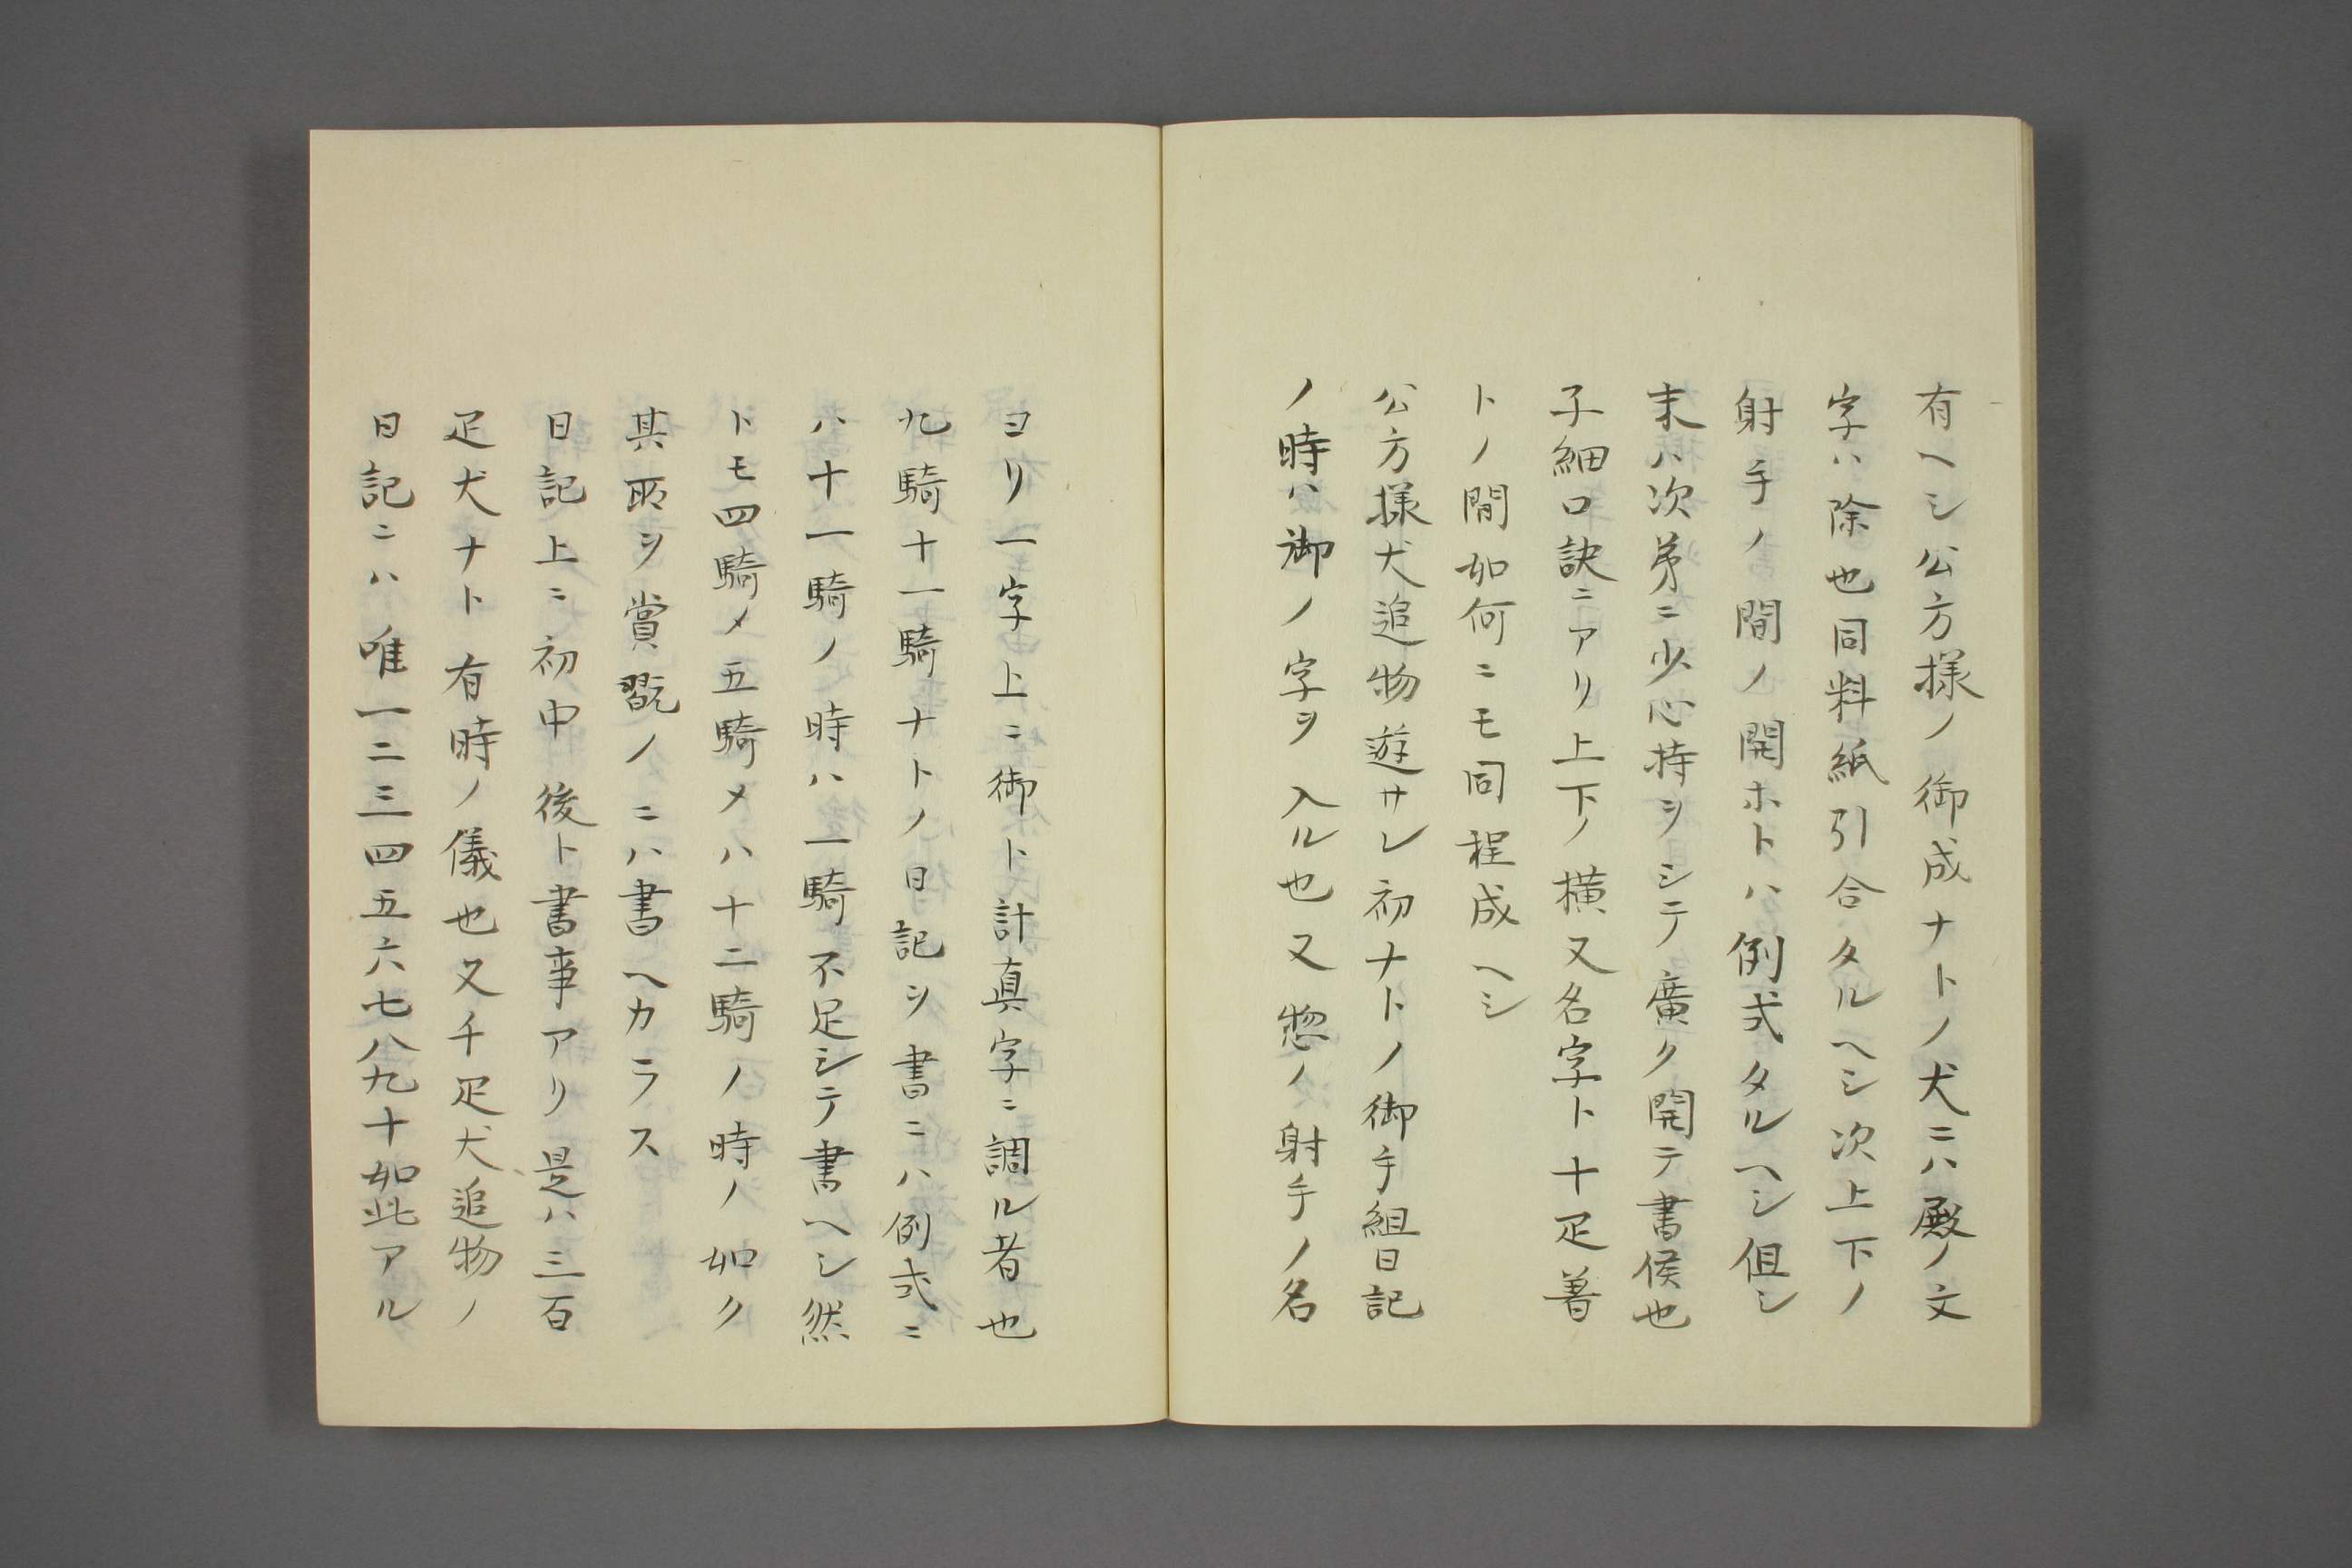 有ヘシ公方様ノ御成ナトノ犬ニハ殿ノ文
字ハ除也同料紙引合タルヘシ次上下ノ
射手ノ間ノ開ホトハ例式タルヘシ但シ
末ハ次第ニ少心持ヲシテ廣ク開テ書候也
子細口訣ニアリ上下ノ横又名字ト十疋著
トノ間如何ニモ同程成ヘシ
公方様犬追物遊サレ初ナトノ御手組日記
ノ時ハ御ノ字ヲ入ル也又惣ノ射手ノ名
ヨリ一字上ニ御ト計真字ニ調ル者也
九騎十一騎ナトノ日記ヲ書ニハ例式ニ
ハ十一騎ノ時ハ一騎不足シテ書ヘシ然
トモ四騎メ五騎メハ十二騎ノ時ノ如ク
其所ヲ賞翫ノニハ書ヘカラス
日記上ニ初中後ト書事アリ是ハ三百
疋犬ナト有時ノ儀也又千疋犬追物ノ
日記ニハ唯一二三四五六七八九十如此アル